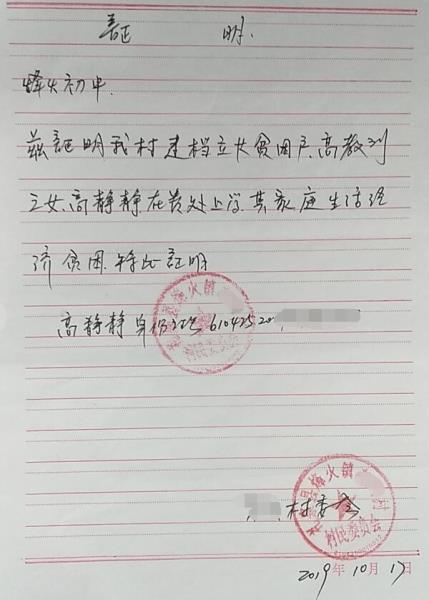 証 明
烽火初中
兹証明我村建档立卡贫困户高教利
之女高静静在贵处上学其家庭生活经
济贫困.特此証明
烽火镇
村民委员会
高静静身份证号61042520
县烽火镇 村
村民委员会
村委会
2019年10月17日